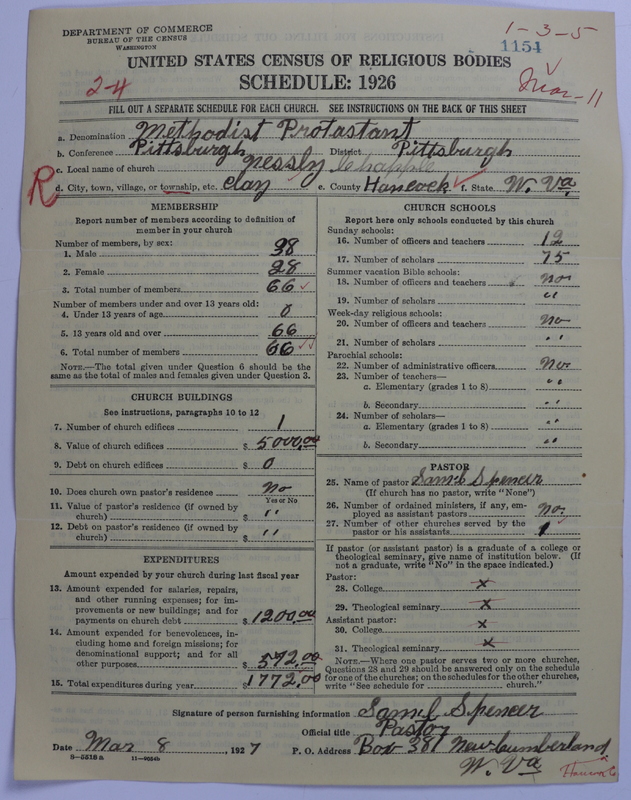 DEPARTMENT OF COMMERCE
BUREAU OF THE CENSUS
WASHINGTON
1-3-5
1154
UNITED STATES CENSUS OF RELIGIOUS BODIES
SCHEDULE: 1926
2-4
Mar-11
FILL OUT A SEPARATE SCHEDULE FOR EACH CHURCH. SEE INSTRUCTIONS ON THE BACK OF THIS SHEET
a. Denomination Methodist Protastant
b. Conference Pittsburgh District Pittsburgh
c. Local name of church Nessly chapple
R
d. City, town, village, or township, etc. Clay e. County Hancock f. State W. Va.
MEMBERSHIP
Report number of members according to definition of
member in your church
Number of members, by sex:
1. Male 38
2. Female 28
3. Total number of members 66
Number of members under and over 13 years old:
4. Under 13 years of age 0
5. 13 years old and over 66
6. Total number of members 66
NOTE.—The total given under Question 6 should be
same as the total of males and females given under Question 3.
CHURCH BUILDINGS
See instructions, paragraphs 10 to 12
7. Number of church edifices 1
8. Value of church edifices $ 5000,00
9. Debt on church edifices $ 0
10. Does church own pastor's residence No
Yes or No
11. Value of pastor's residence (if owned by
church) $ "
12. Debt on pastor's residence (if owned by
church) $ "
EXPENDITURES
Amount expended by your church during last fiscal year
13. Amount expended for salaries, repairs,
and other running expenses; for im-
provements or new buildings; and for
payments on church debt $ 1200,00
14. Amount expended for benevolences, in-
cluding home and foreign missions; for
denominational support; and for all
other purposes $ 572,00
15. Total expenditures during year $ 1772,00
CHURCH SCHOOLS
Report here only schools conducted by this church
Sunday schools:
16. Number of officers and teachers 12
17. Number of scholars 75
Summer vacation Bible schools:
18. Number of officers and teachers No
19. Number of scholars "
Week-day religious schools:
20. Number of officers and teachers No
21. Number of scholars "
Parochial schools:
22. Number of administrative officers No.
23. Number of teachers—
a. Elementary (grades 1 to 8) "
b. Secondary "
24. Number of scholars—
a. Elementary (grades 1 to 8) "
b. Secondary "
PASTOR
25. Name of pastor Saml Spencer
(If church has no pastor, write "None")
26. Number of ordained ministers, if any, em-
ployed as assistant pastors No.
27. Number of other churches served by the
pastor or his assistants 1
If pastor (or assistant pastor) is a graduate of a college or
theological seminary, give name of institution below. (If
not a graduate, write "No" in the space indicated.)
Pastor:
28. College x
29. Theological seminary x
Assistant pastor:
30. College x
31. Theological seminary x
NOTE.—Where one pastor serves two or more churches,
Questions 28 and 29 should be answered only on the schedule
for one of the churches; on the schedules for the other churches,
write "See schedule for church."
Signature of person furnishing information Saml Spencer
Official title Pastor
Date Mar 8, 1927 P. O. Address Box 381 New Cumberland
W. Va
Hancock